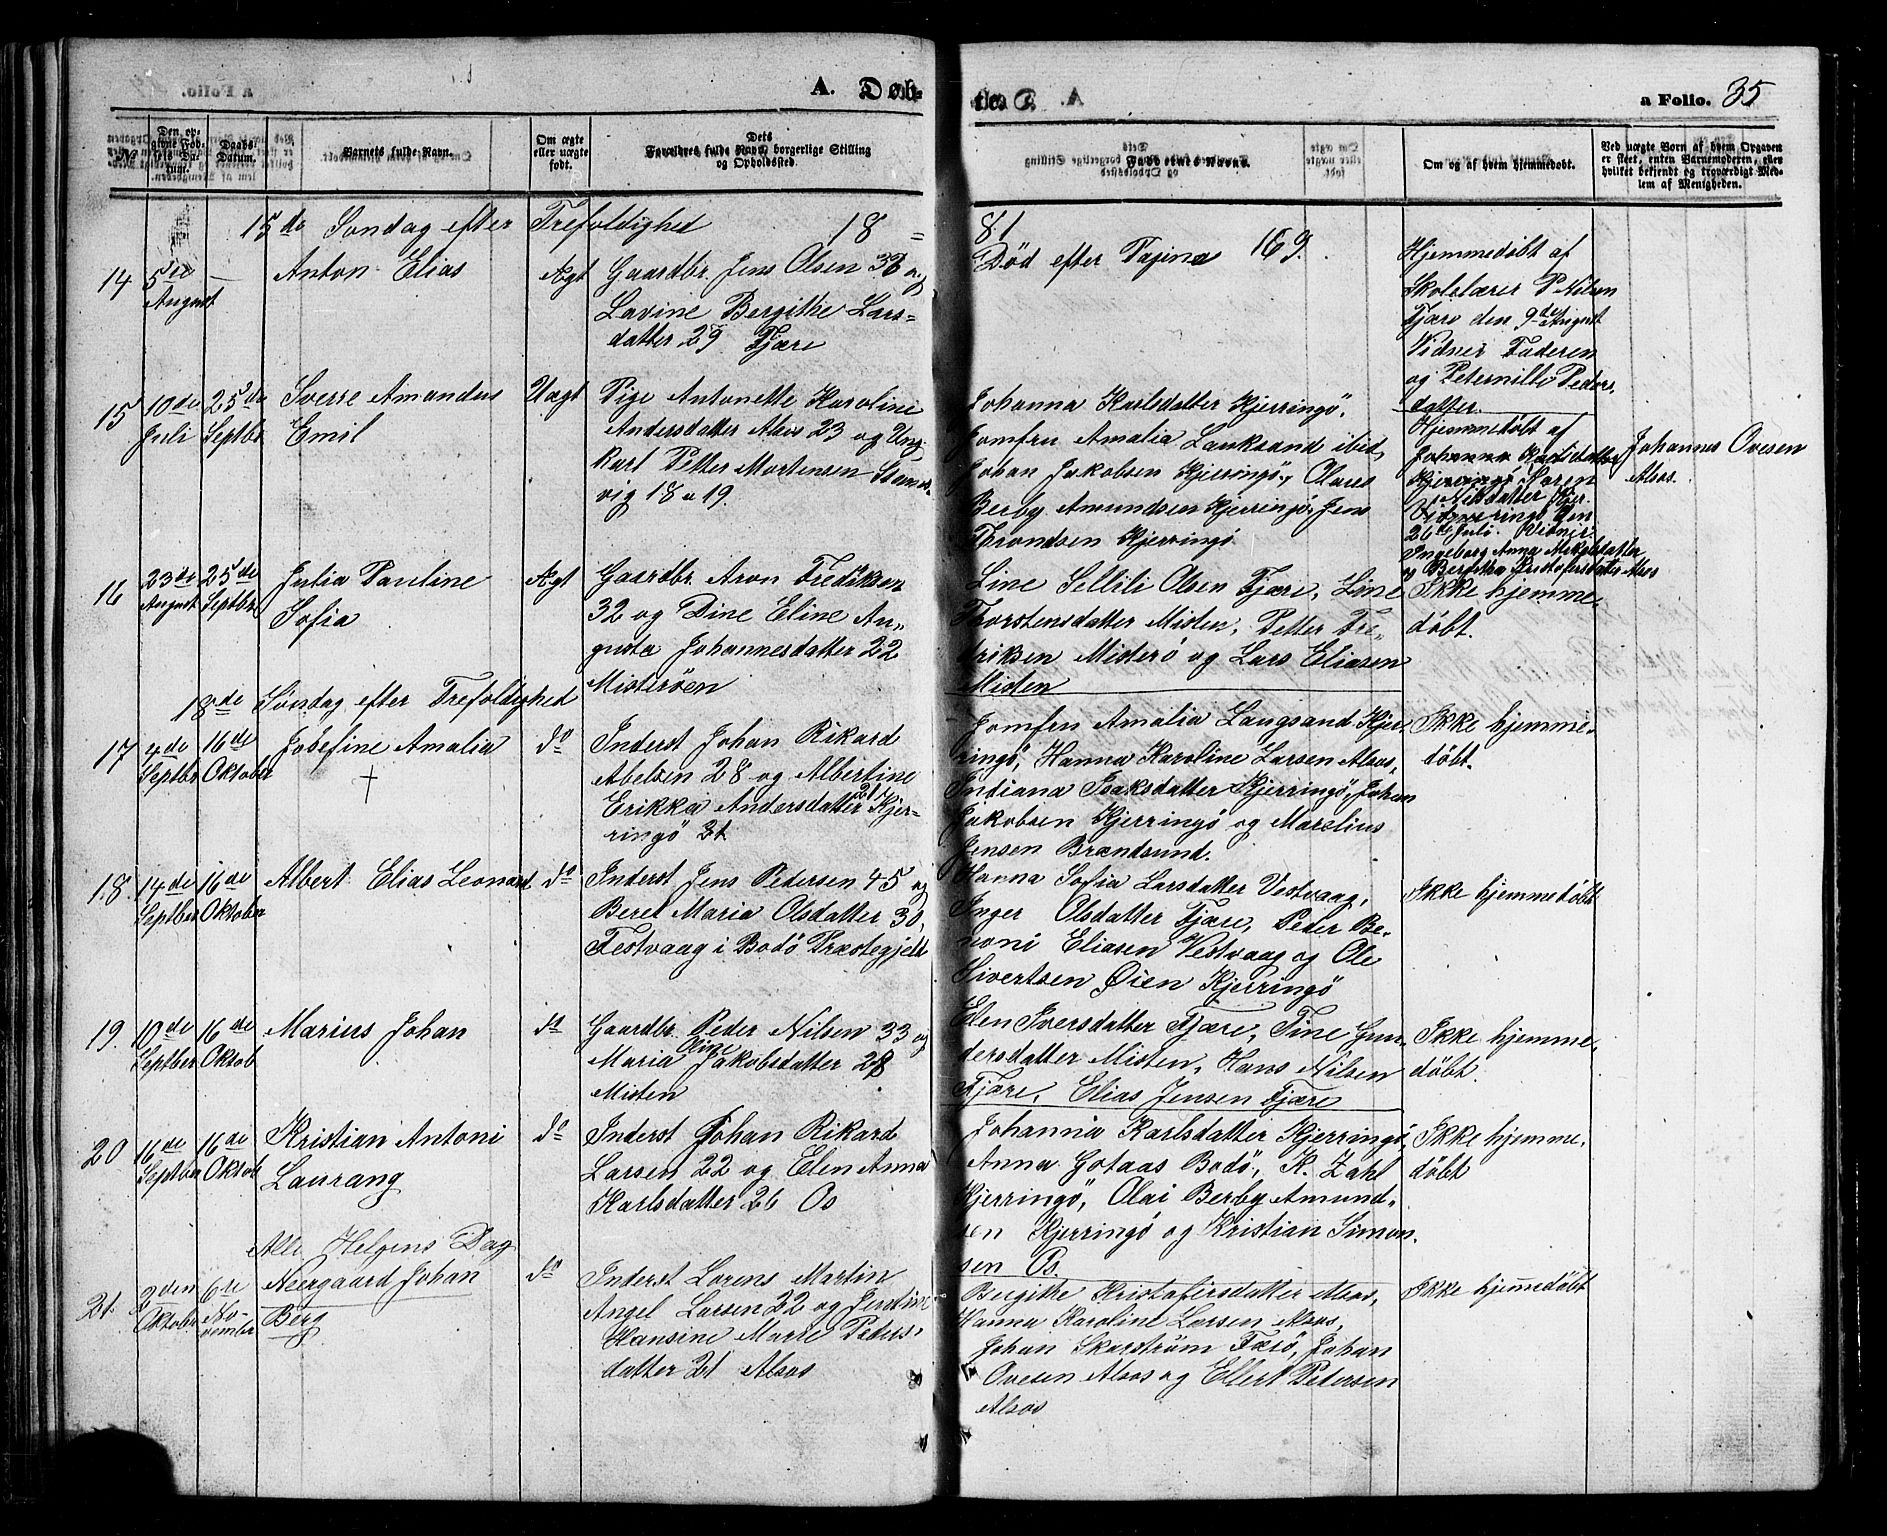 A. Døb-
te. A.
a Folio. 35
No.
Den op-
givne Fød-
sels Da-
tum.
Daabs-
Datum.
Barnets fulde Navn.
Om ægte
eller uægte
født.
Dets
Forældres fulde Navn, borgerlige Stilling
og Opholdssted.
Faddernes Navne.
Om og af hvem hjemmedøbt.
Ved uægte Børn af hvem Opgaven
er skeet, enten Barnemoderen, eller
hvilket bekjendt og troværdigt Med-
lem af Menigheden.
15de Søndag efter Trefoldighed 18 = 81
14
5te
August
—
Anton Elias
Ægt
Gaardbr. Jens Olsen 36 og
Lavine Bergithe Lars=
datter 29 Fjære
Død efter Pagina 169.
Hjemmedøbt af
Skolelærer P Nilsen
Fjære den 9de August
Vidner Faderen
og Peternille Peders
datter.
15
10de
Juli
25de
Septbr
Sverre Amandus
Emil
Uægt
Pige Antonette Karoline
Andersdatter Alsos 23 og Ung
karl Petter Mortensen Stems-
vig 18 a 19.
Johanna Karlsdatter Kjerringö,
Jomfru Amalia Lauksand ibid,
Johan Jakobsen Kjerringö, Olaus
Berby Amundsen Kjerringö, Jens
Throndsen Kjerringö
Hjemmedøbt af
Johanna Karlsdatter
Kjerringö Karen
Nilsdatter Kjer-
ringö den
26de Juli. Vidner:
Ingeborg Anna
og Bergitha Kristofersdatter Alsos
Johannes Ovesen
Alsos.
16
23de
August
25de
Septbr
Julia Pauline
Sofia
Ægt
Gaardbr. Aron Fredriksen
32 og Dine Eline Au-
gusta Johannesdatter 22
Misterøen
Line Sellili Olsen Fjære, Line
Thorstensdatter Misten, Petter Fre-
driksen Misterö og Lars Eliasen
Misten
Ikke hjemme-
døbt.
18de Søndag efter Trefoldighed
17
4de
Septbr
16de
Oktober
Josefine Amalia
+
do
Inderst Johan Rikard
Abelsen 28 og Albertine
Erikka Andersdatter 21 Kjer-
ringö 21
Jomfru Amalia Laugsand Kjer-
ringö, Hanna Karoline Larsen Alsos,
Indiana Isaksdatter Kjerringö, Johan
Jakobsen Kjerringö og Marelius
Jensen Brændsund.
Ikke hjemme-
døbt.
18.
14de
Septber
16de
Oktober
Albert Elias Leonard
do
Inderst Jens Pedersen 45 og
Beret Maria Olsdatter 30,
Festvaag i Bodö Præstegjeld
Hanna Sofia Larsdatter Vestvaag,
Inger Olsdatter Fjære, Peder Be-
noni Eliasen Vestvaag og Ole
Sivertsen Øien Kjerringö
Ikke hjemmedøbt
19.
10de
Septber
16de
Oktob
Marius Johan
do
Gaardbr. Peder Nilsen 33 og
Maria Oline Jakobsdatter 28
Misten
Elen Iversdatter Fjære, Tine Gun-
dersdatter Misten, Hans Nilsen
Fjære, Elias Jensen Fjære
Ikke hjemme-
døbt.
20
16de
Septbr
16de
Oktob
Kristian Antoni
Laurang
do
Inderst Johan Rikard
Larsen 22 og Elen Anna
Karlsdatter 26 Os
Johanna Karlsdatter Kjerringö,
Anna Gotaas Bodö, K. Zahl
Kjerringö, Olai Berby Amund-
sen Kjerringö og Kristian Simon-
sen Os.
Ikke hjemme-
døbt
Alle Helgens Dag
21.
2den
Oktobr
6te
No-
vember
Neergaard Johan
Berg
do
Inderst Lorens Martin
Angel Larsen 22 og
Hansine Marie Peders-
datter 21 Alsos
Bergithe Kristofersdatter Alsos,
Hanna Karoline Larsen Alsos,
Johan Skarstrøm Færö, Johan
Ovesen Alsos og Ellert Pedersen
Alsos
Ikke hjemmedøbt